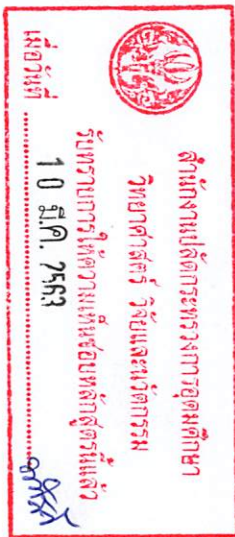 สำนักงานปลัดกระทรวงการอุดมศึกษา
วิทยาศาสตร์ วิจัยและนวัตกรรม
รับทราบการให้ความเห็นชอบหลักสูตรนี้แล้ว
เมื่อวันที่ 10 มี.ค. 2563